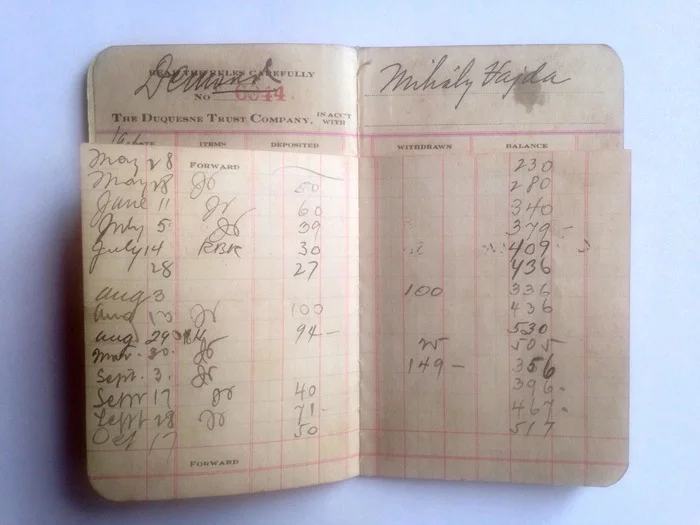 READ THE RULES CAREFULLY
Demand
No 6344
Mihály Hajda
THE DUQUESNE TRUST COMPANY, IN ACC'T WITH
DATE ITEMS DEPOSITED WITHDRAWN BALANCE
May 28 FORWARD 230
May 28 Jr 50 280
June 11 Jr 60 340
July 5 Jr 39 379 -
July 14 RBK 30 409
28 27 436
Aug 3 100 336
Aug 10 Jr 100 436
Aug 29 Jr 94 - 530
30 Jr 505
Sept. 3. Jr 149 - 356
Sept 17 Jr 40 396
Sept 28 Jr 71 - 467
Oct 17 50 517
FORWARD